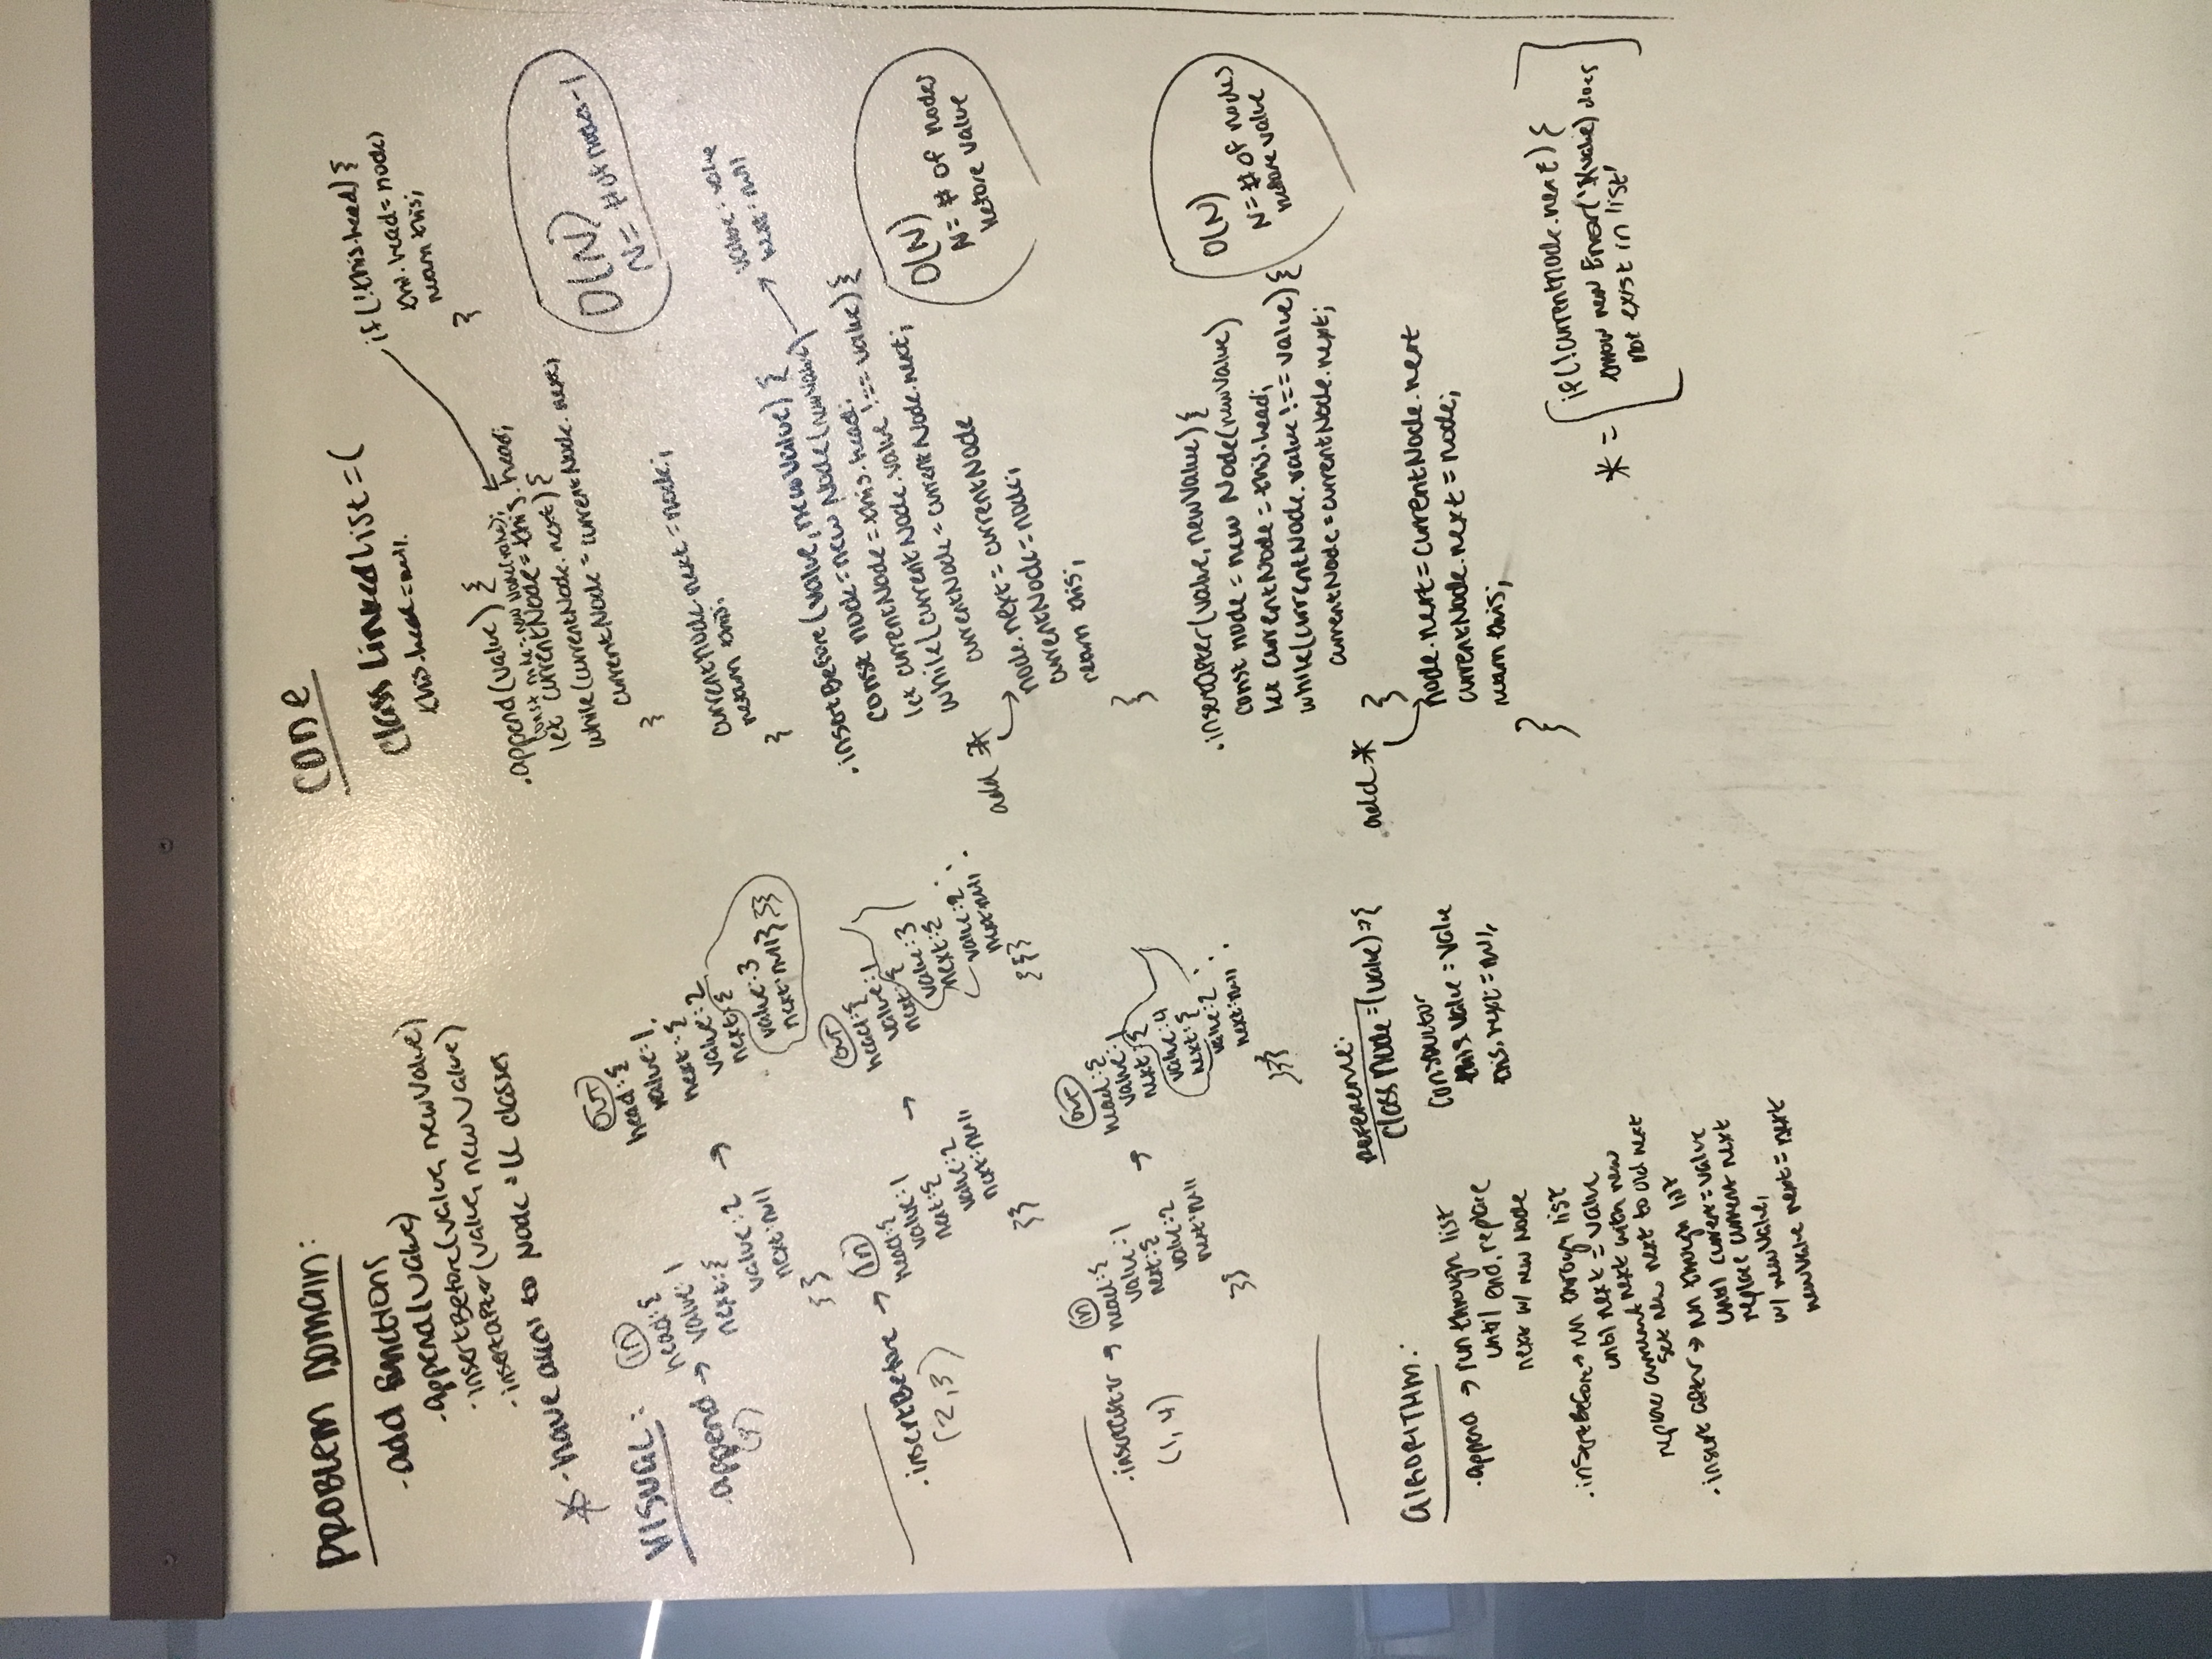 PROBLEM DOMAIN:
- add functions
- append(value)
- insertBefore(value, newValue)
- insertAfter(value, newValue)
* - have access to Node & LL classes
VISUAL:
.append →
in
head: {
value: 1
next: {
value: 2
next: null
}}
→
OUT
head: {
value: 1,
next: {
value: 2
next: {
value: 3
next: null} }}
.insertBefore →
(2,3)
in
head: {
value: 1
next: {
value: 2
next: null
}}
→
OUT
head: {
value: 1
next: {
value: 3
next: {
value: 2
next: null
}}}
.insertAfter →
(1, 4)
in
head: {
value: 1
next: {
value: 2
next: null
}}
→
OUT
head: {
value: 1
next: {
value: 4
next: {
value: 2
next: null
}}}
ALGORITHM:
.append → run through list
until end, replace
next w/ new Node
.insertBefore → run through list
until next = value
replace current next with new
set new next to old next
.insert after → run through list
until current = value
replace current next
w/ newValue,
newValue next = next
REFERENCE:
class Node = (value) => {
Constructor
this.value = value
this.next = null
CODE
class LinkedList = (
this.head = null.
if(!this.head) {
this.head = node)
return this;
}
.append(value) {
const node = new Node(value);
let currentNode = this.head;
while(currentNode.next) {
currentNode = currentNode.next;
}
currentNode.next = node;
return this;
}
O(N)
N = # of nodes-1
.insertBefore(value, newValue) {
const node = new Node(newValue)
value = value
next = null
let currentNode = this.head;
while(currentNode.value !== value) {
currentNode = currentNode.next;
add *
node.next = currentNode
currentNode = node;
return this;
}
O(N)
N = # of nodes
before value
.insertAfter(value, newValue) {
const node = new Node(newValue)
let currentNode = this.head;
while(currentNode.value !== value) {
currentNode = currentNode.next;
}
add *
node.next = currentNode.next
currentNode.next = node;
return this;
}
O(N)
N = # of nodes
before value
* =
if(!currentNode.next) {
throw new Error('$(value) does
not exist in list'